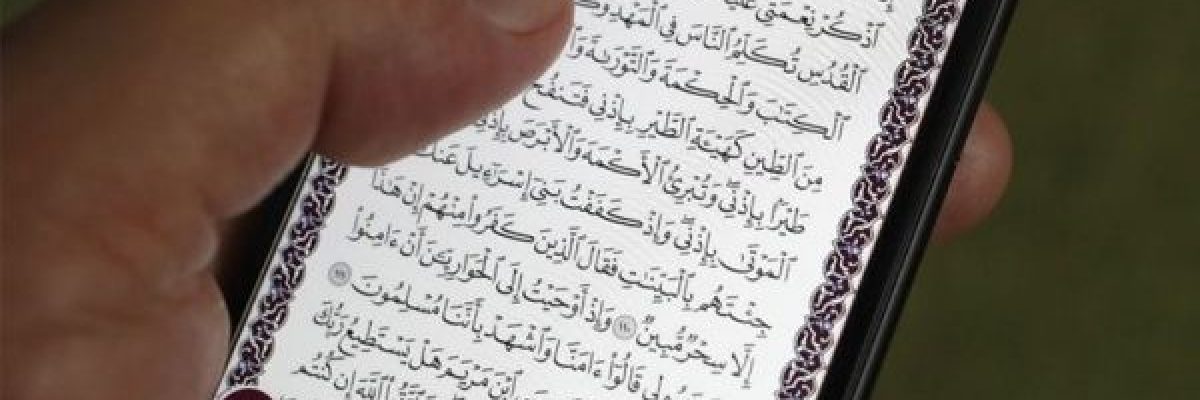 ٱذْكُرْ نِعْمَتِى
ٱلْقُدُسِ تُكَلِّمُ ٱلنَّاسَ فِى ٱلْمَهْدِ
ٱلْكِتَٰبَ وَٱلْحِكْمَةَ وَٱلتَّوْرَىٰةَ
مِنَ ٱلطِّينِ كَهَيْـَٔةِ ٱلطَّيْرِ بِإِذْنِى فَتَنفُخُ
طَيْرًۢا بِإِذْنِى ۖ وَتُبْرِئُ ٱلْأَكْمَهَ وَٱلْأَبْرَصَ بِإِذْنِى
ٱلْمَوْتَىٰ بِإِذْنِى ۖ وَإِذْ كَفَفْتُ بَنِىٓ إِسْرَٰٓءِيلَ عَنكَ
جِئْتَهُم بِٱلْبَيِّنَٰتِ فَقَالَ ٱلَّذِينَ كَفَرُوا۟ مِنْهُمْ إِنْ هَٰذَآ
إِلَّا سِحْرٌ مُّبِينٌ ١١٠ وَإِذْ أَوْحَيْتُ إِلَى ٱلْحَوَارِيِّـۧنَ أَنْ ءَامِنُوا۟
قَالُوٓا۟ ءَامَنَّا وَٱشْهَدْ بِأَنَّنَا مُسْلِمُونَ ١١١
ٱبْنَ مَرْيَمَ هَلْ يَسْتَطِيعُ رَبُّكَ
ٱللَّهَ إِن كُنتُم